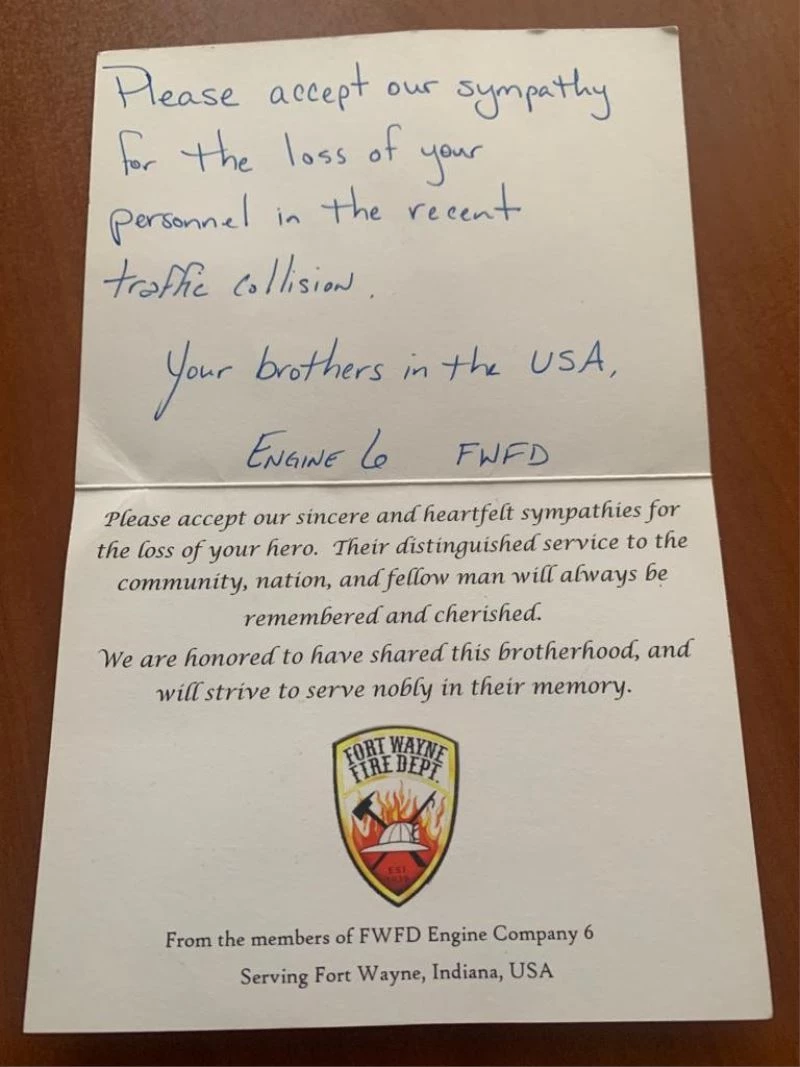 Please accept our sympathy
for the loss of your
personnel in the recent
traffic collision.
Your brothers in the USA,
ENGINE 6 FWFD
Please accept our sincere and heartfelt sympathies for
the loss of your hero. Their distinguished service to the
community, nation, and fellow man will always be
remembered and cherished.
We are honored to have shared this brotherhood, and
will strive to serve nobly in their memory.
FORT WAYNE
FIRE DEPT.
EST.
From the members of FWFD Engine Company 6
Serving Fort Wayne, Indiana, USA